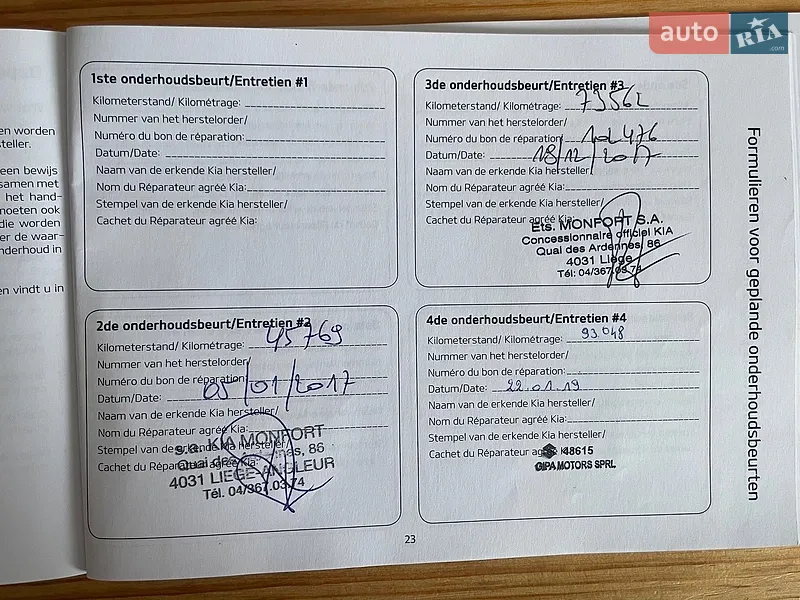 auto RIA .com
en worden
steller.
een bewijs
samen met
het hand-
moeten ook
die worden
er de waar-
nderhoud in
en vindt u in
1ste onderhoudsbeurt/Entretien #1
Kilometerstand/ Kilométrage:
Nummer van het herstelorder/
Numéro du bon de réparation:
Datum/Date:
Naam van de erkende Kia hersteller/
Nom du Réparateur agréé Kia:
Stempel van de erkende Kia hersteller/
Cachet du Réparateur agréé Kia:
2de onderhoudsbeurt/Entretien #2
Kilometerstand/ Kilométrage: 45769
Nummer van het herstelorder/
Numéro du bon de réparation
Datum/Date: 05/01/2017
Naam van de erkende Kia hersteller/
Nom du Réparateur agréé Kia:
Stempel van de erkende Kia hersteller/
Cachet du Réparateur agréé Kia:
s.a. KIA MONFORT
Quai des Ardennes, 86
4031 LIEGE-ANGLEUR
Tél. 04/367.03.74
3de onderhoudsbeurt/Entretien #3
Kilometerstand/ Kilométrage:
Nummer van het herstelorder/
Numéro du bon de réparation: 102476
Datum/Date: 18/12/2017
Naam van de erkende Kia hersteller/
Nom du Réparateur agréé Kia:
Stempel van de erkende Kia hersteller/
Cachet du Réparateur agréé Kia:
Ets. MONFORT S.A.
Concessionnaire officiel KIA
Quai des Ardennes, 86
4031 Liège
Tél: 04/367.03.74
4de onderhoudsbeurt/Entretien #4
Kilometerstand/ Kilométrage: 93.048
Nummer van het herstelorder/
Numéro du bon de réparation:
Datum/Date: 22.01.19
Naam van de erkende Kia hersteller/
Nom du Réparateur agréé Kia:
Stempel van de erkende Kia hersteller/
Cachet du Réparateur agréé K
48615
GIPA MOTORS SPRL
Formulieren voor geplande onderhoudsbeurten
23